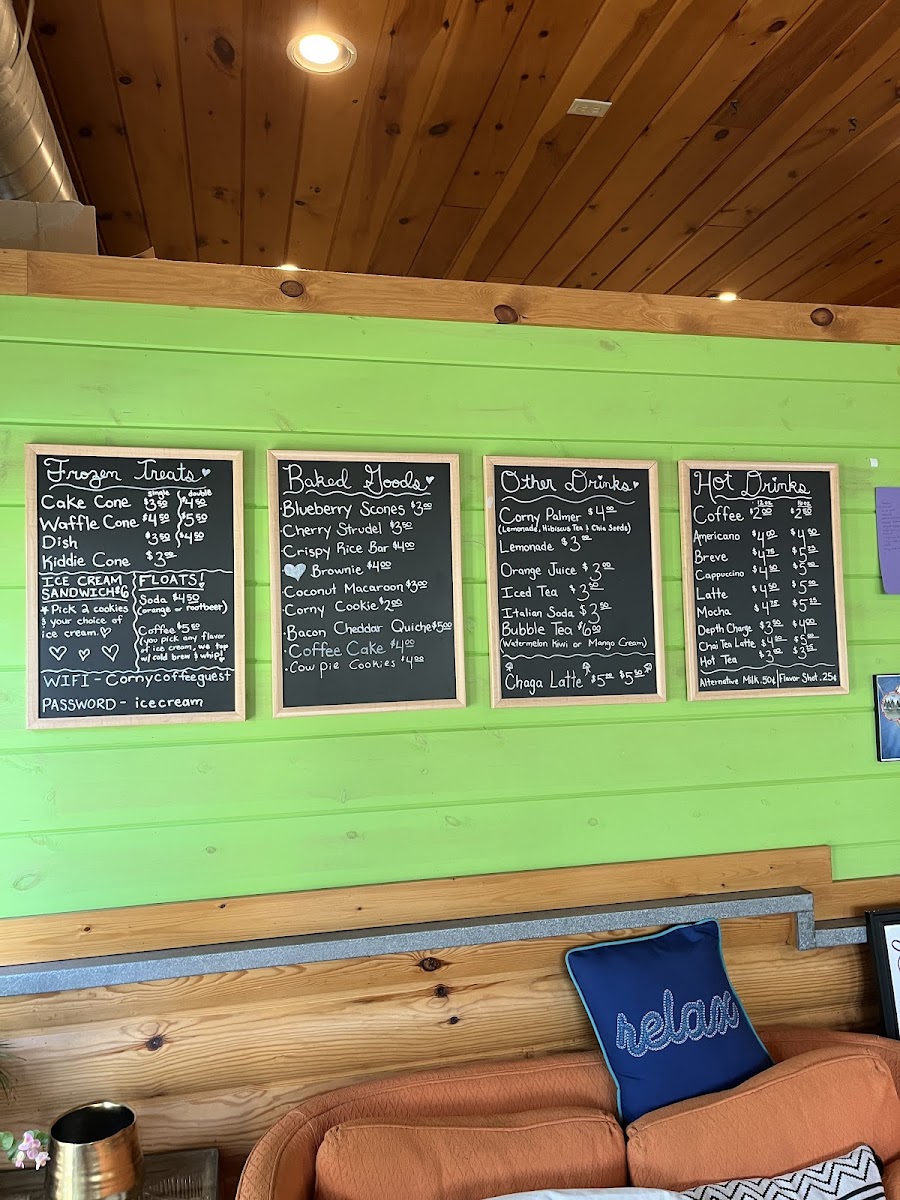 Frozen Treats
single double
Cake Cone $3.50 $4.50
Waffle Cone $4.50 $5.50
Dish $3.50 $4.50
Kiddie Cone $3.00
ICE CREAM
SANDWICH $6
* Pick 2 cookies
& your choice of
ice cream.
FLOATS!
Soda $4.50
(orange or rootbeer)
Coffee $5.50
(you pick any flavor
of ice cream, we top
w/ cold brew & whip!
WIFI - Cornycoffeeguest
PASSWORD - icecream
Baked Goods
Blueberry Scones $3.00
Cherry Strudel $3.50
Crispy Rice Bar $4.00
Brownie $4.00
Coconut Macaroon $3.00
Corny Cookie $2.00
Bacon Cheddar Quiche $5.00
Coffee Cake $4.00
Cow pie Cookies $4.00
Other Drinks
Corny Palmer $4.00
(Lemonade, Hibiscus Tea & Chia Seeds)
Lemonade $3.00
Orange Juice $3.00
Iced Tea $3.50
Italian Soda $3.50
Bubble Tea $6.50
(Watermelon Kiwi or Mango Cream)
Chaga Latte $5.00 $5.50
Hot Drinks
12oz 16oz
Coffee $2.00 $2.50
Americano $4.00 $4.50
Breve $4.75 $5.25
Cappuccino $4.50 $5.00
Latte $4.50 $5.00
Mocha $4.75 $5.25
Depth Charge $3.50 $4.00
Chai Tea Latte $4.50 $5.00
Hot Tea $3.00
Alternative Milk .50¢ Flavor Shot .25¢
relax